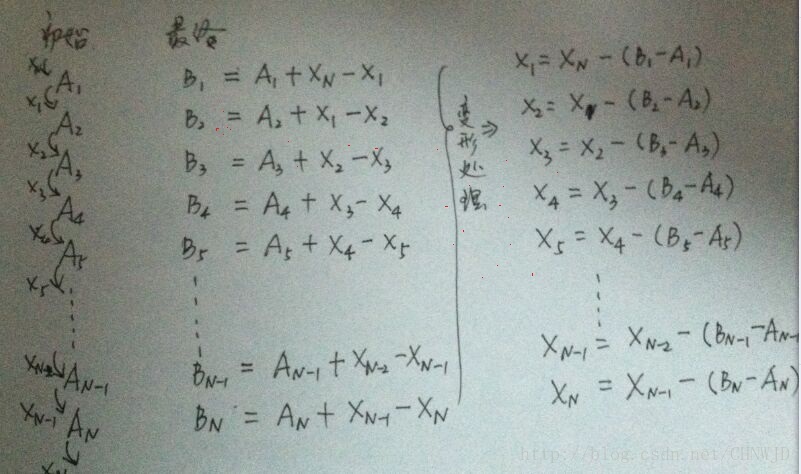 初始 最终
X_N A_1 B_1 = A_1 + X_N - X_1 X_1 = X_N - (B_1 - A_1)
X_1 A_2 B_2 = A_2 + X_1 - X_2 X_2 = X_1 - (B_2 - A_2)
X_2 A_3 B_3 = A_3 + X_2 - X_3 X_3 = X_2 - (B_3 - A_3)
X_3 A_4 B_4 = A_4 + X_3 - X_4 X_4 = X_3 - (B_4 - A_4)
X_4 A_5 B_5 = A_5 + X_4 - X_5 X_5 = X_4 - (B_5 - A_5)
X_5
变形处理 ⇒
X_{N-2} A_{N-1} B_{N-1} = A_{N-1} + X_{N-2} - X_{N-1} X_{N-1} = X_{N-2} - (B_{N-1} - A_{N-1}
X_{N-1} A_N B_N = A_N + X_{N-1} - X_N X_N = X_{N-1} - (B_N - A_N)
X_N
http://blog.csdn.net/CHNWJD